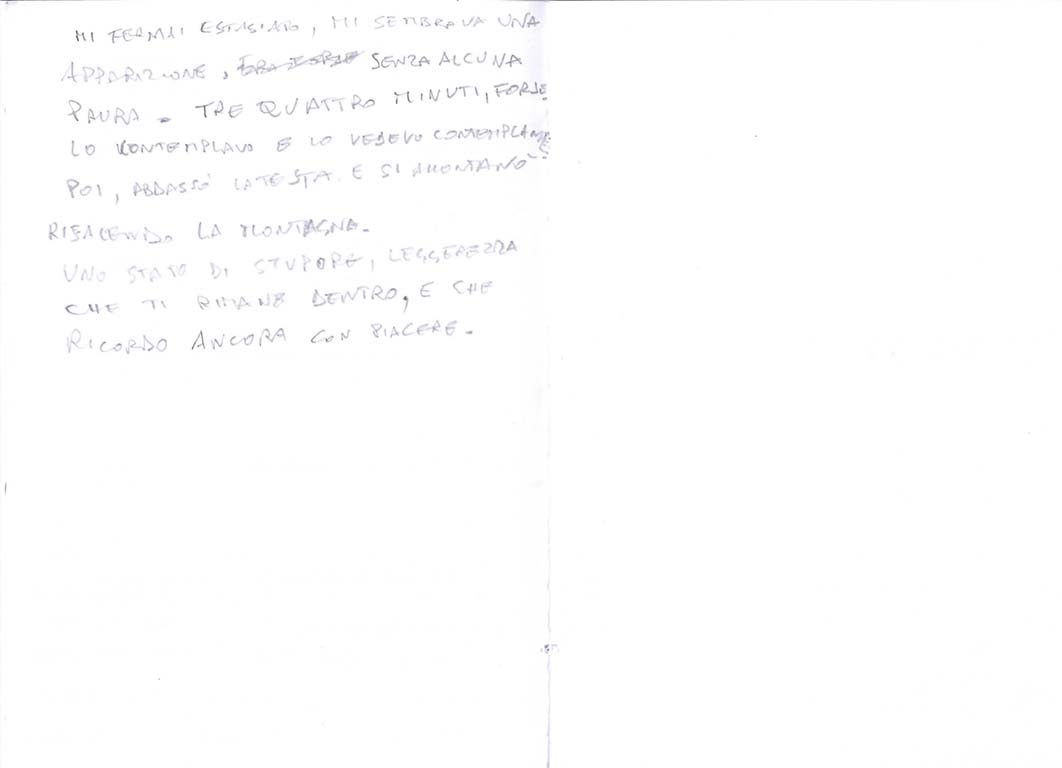 MI FERMAI ESTASIATO, MI SEMBRAVA UNA
APPARIZIONE, SENZA ALCUNA
PAURA. TRE QUATTRO MINUTI, FORSE
LO CONTEMPLAVO E LO VEDEVO
POI, ABBASSÒ LA TESTA E SI ALLONTANÒ
RISALENDO LA MONTAGNA.
UNO STATO DI STUPORE, LEGGEREZZA
CHE TI RIMANE DENTRO, E CHE
RICORDO ANCORA CON PIACERE.